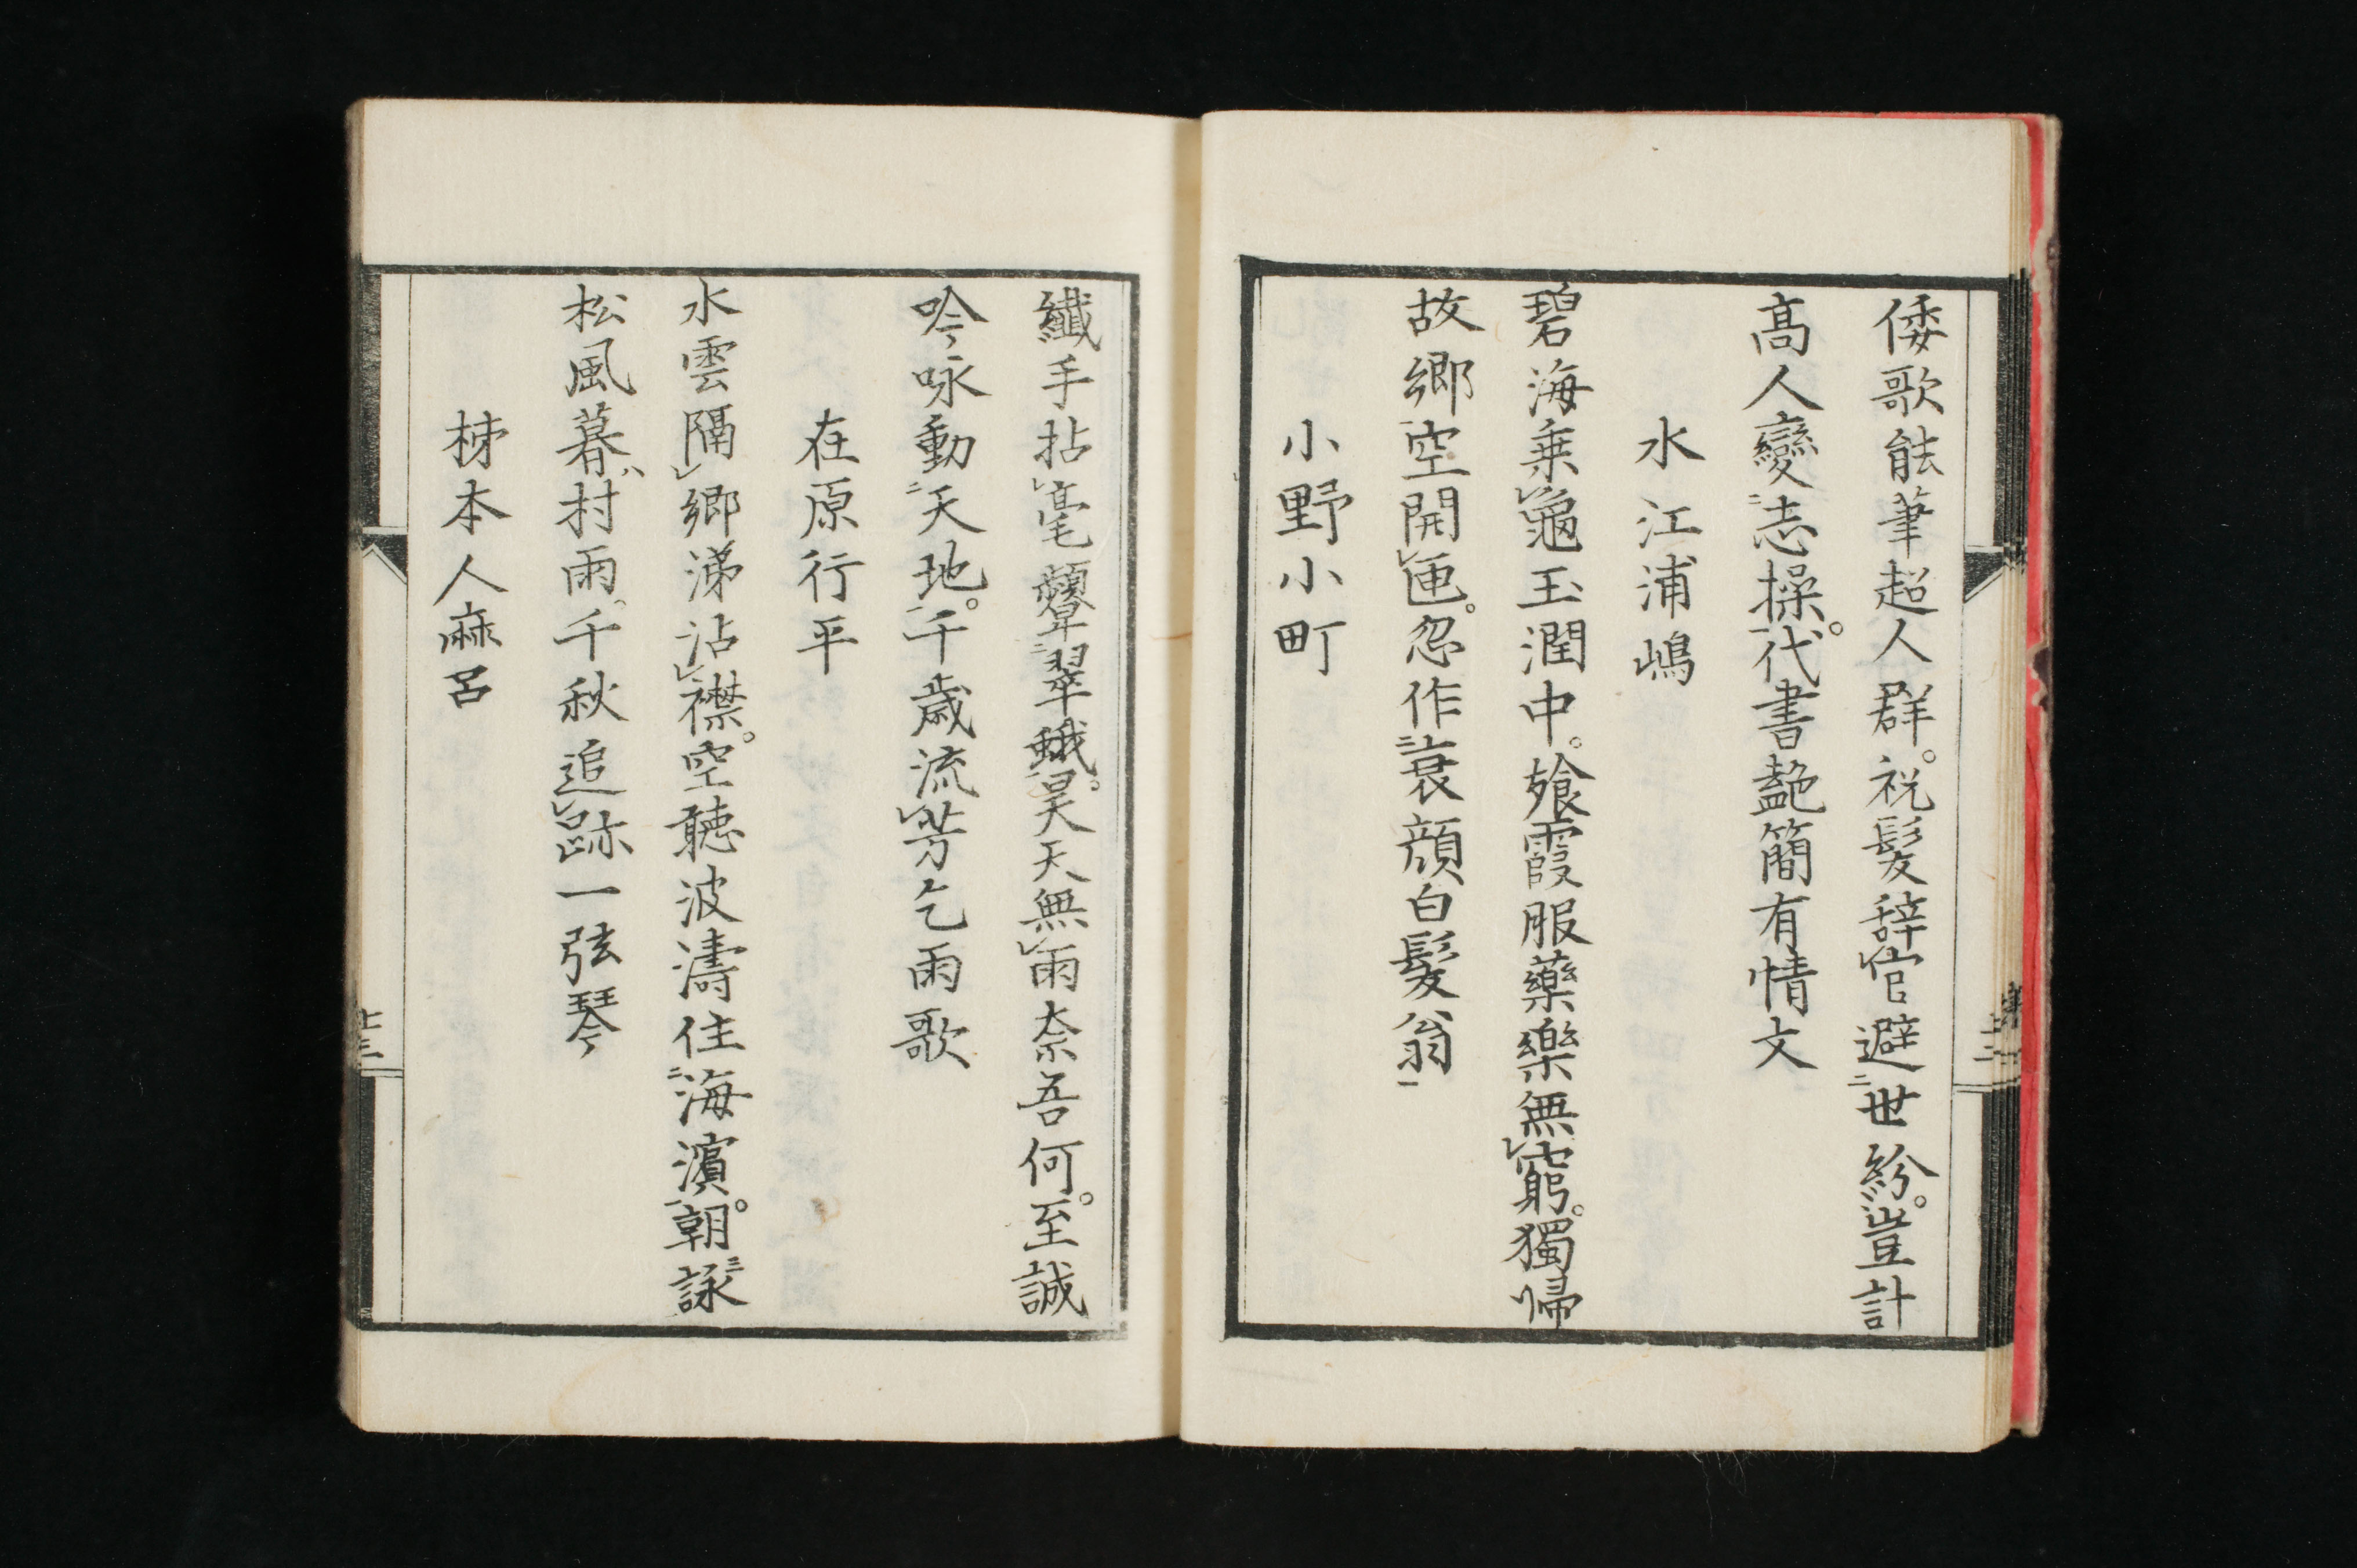 倭歌能筆超人群。祝髮辞官避世紛。豈計
高人變志操。代書艶簡有情文
水江浦嶋
碧海乗龜玉潤中。飱霞服藥樂無窮。獨帰
故郷空開匣。忽作衰顔白髮翁
小野小町
纎手拈毫顰翠蛾。昊天無雨奈吾何。至誠
吟咏動天地。千歳流芳乞雨歌
在原行平
水雲隔郷涕沾襟。空聴波濤住海濱。朝詠
松風暮村雨。千秋追跡一弦琴
柹本人麻呂
十三